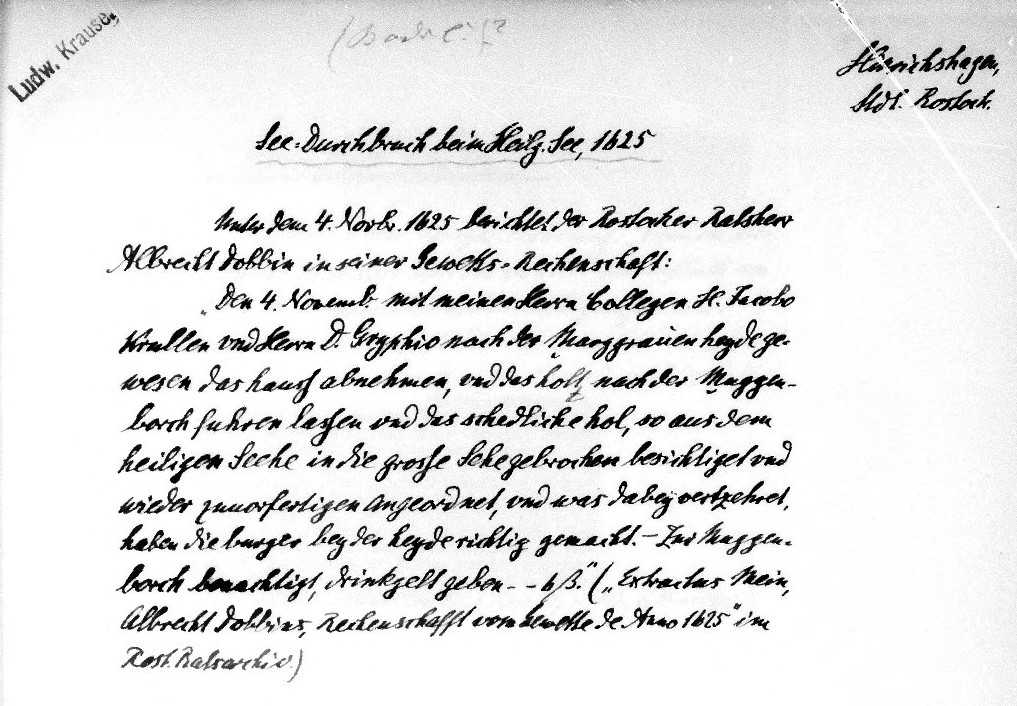 Ludw. Krause,
Hinrichshagen,
Stdt. Rostock.
See-Durchbruch beim Heilg. See, 1625
Unter dem 4. Novbr. 1625 berichtet der Rostocker Ratsherr
Albrecht Dobbin in seiner Gewetts-Rechenschaft:
„Den 4. Novemb. mit meinen Herrn Collegen H. Jacobo
Krullen vnd Herrn D. Gryphio nach der Marggrauen heyde ge-
wesen das hauss abnehmen, vnd das holtz nach der Muggen-
borch fuhren lassen vnd das schedliche hol, so aus dem
heiligen Sehe in die grosse Sehe gebrochen besichtiget vnd
wieder zuuorfertigen angeordnet, vnd was dabey vertzehret,
haben die burger bey der heyde richtig gemacht. – Zur Muggen-
borch benachtigt, drinkgelt geben - - 6 ß." („Extractus Mein,
Albrecht Dobbins, Rechenschafft vom Gewette de Anno 1625" im
Rost. Ratsarchiv.)